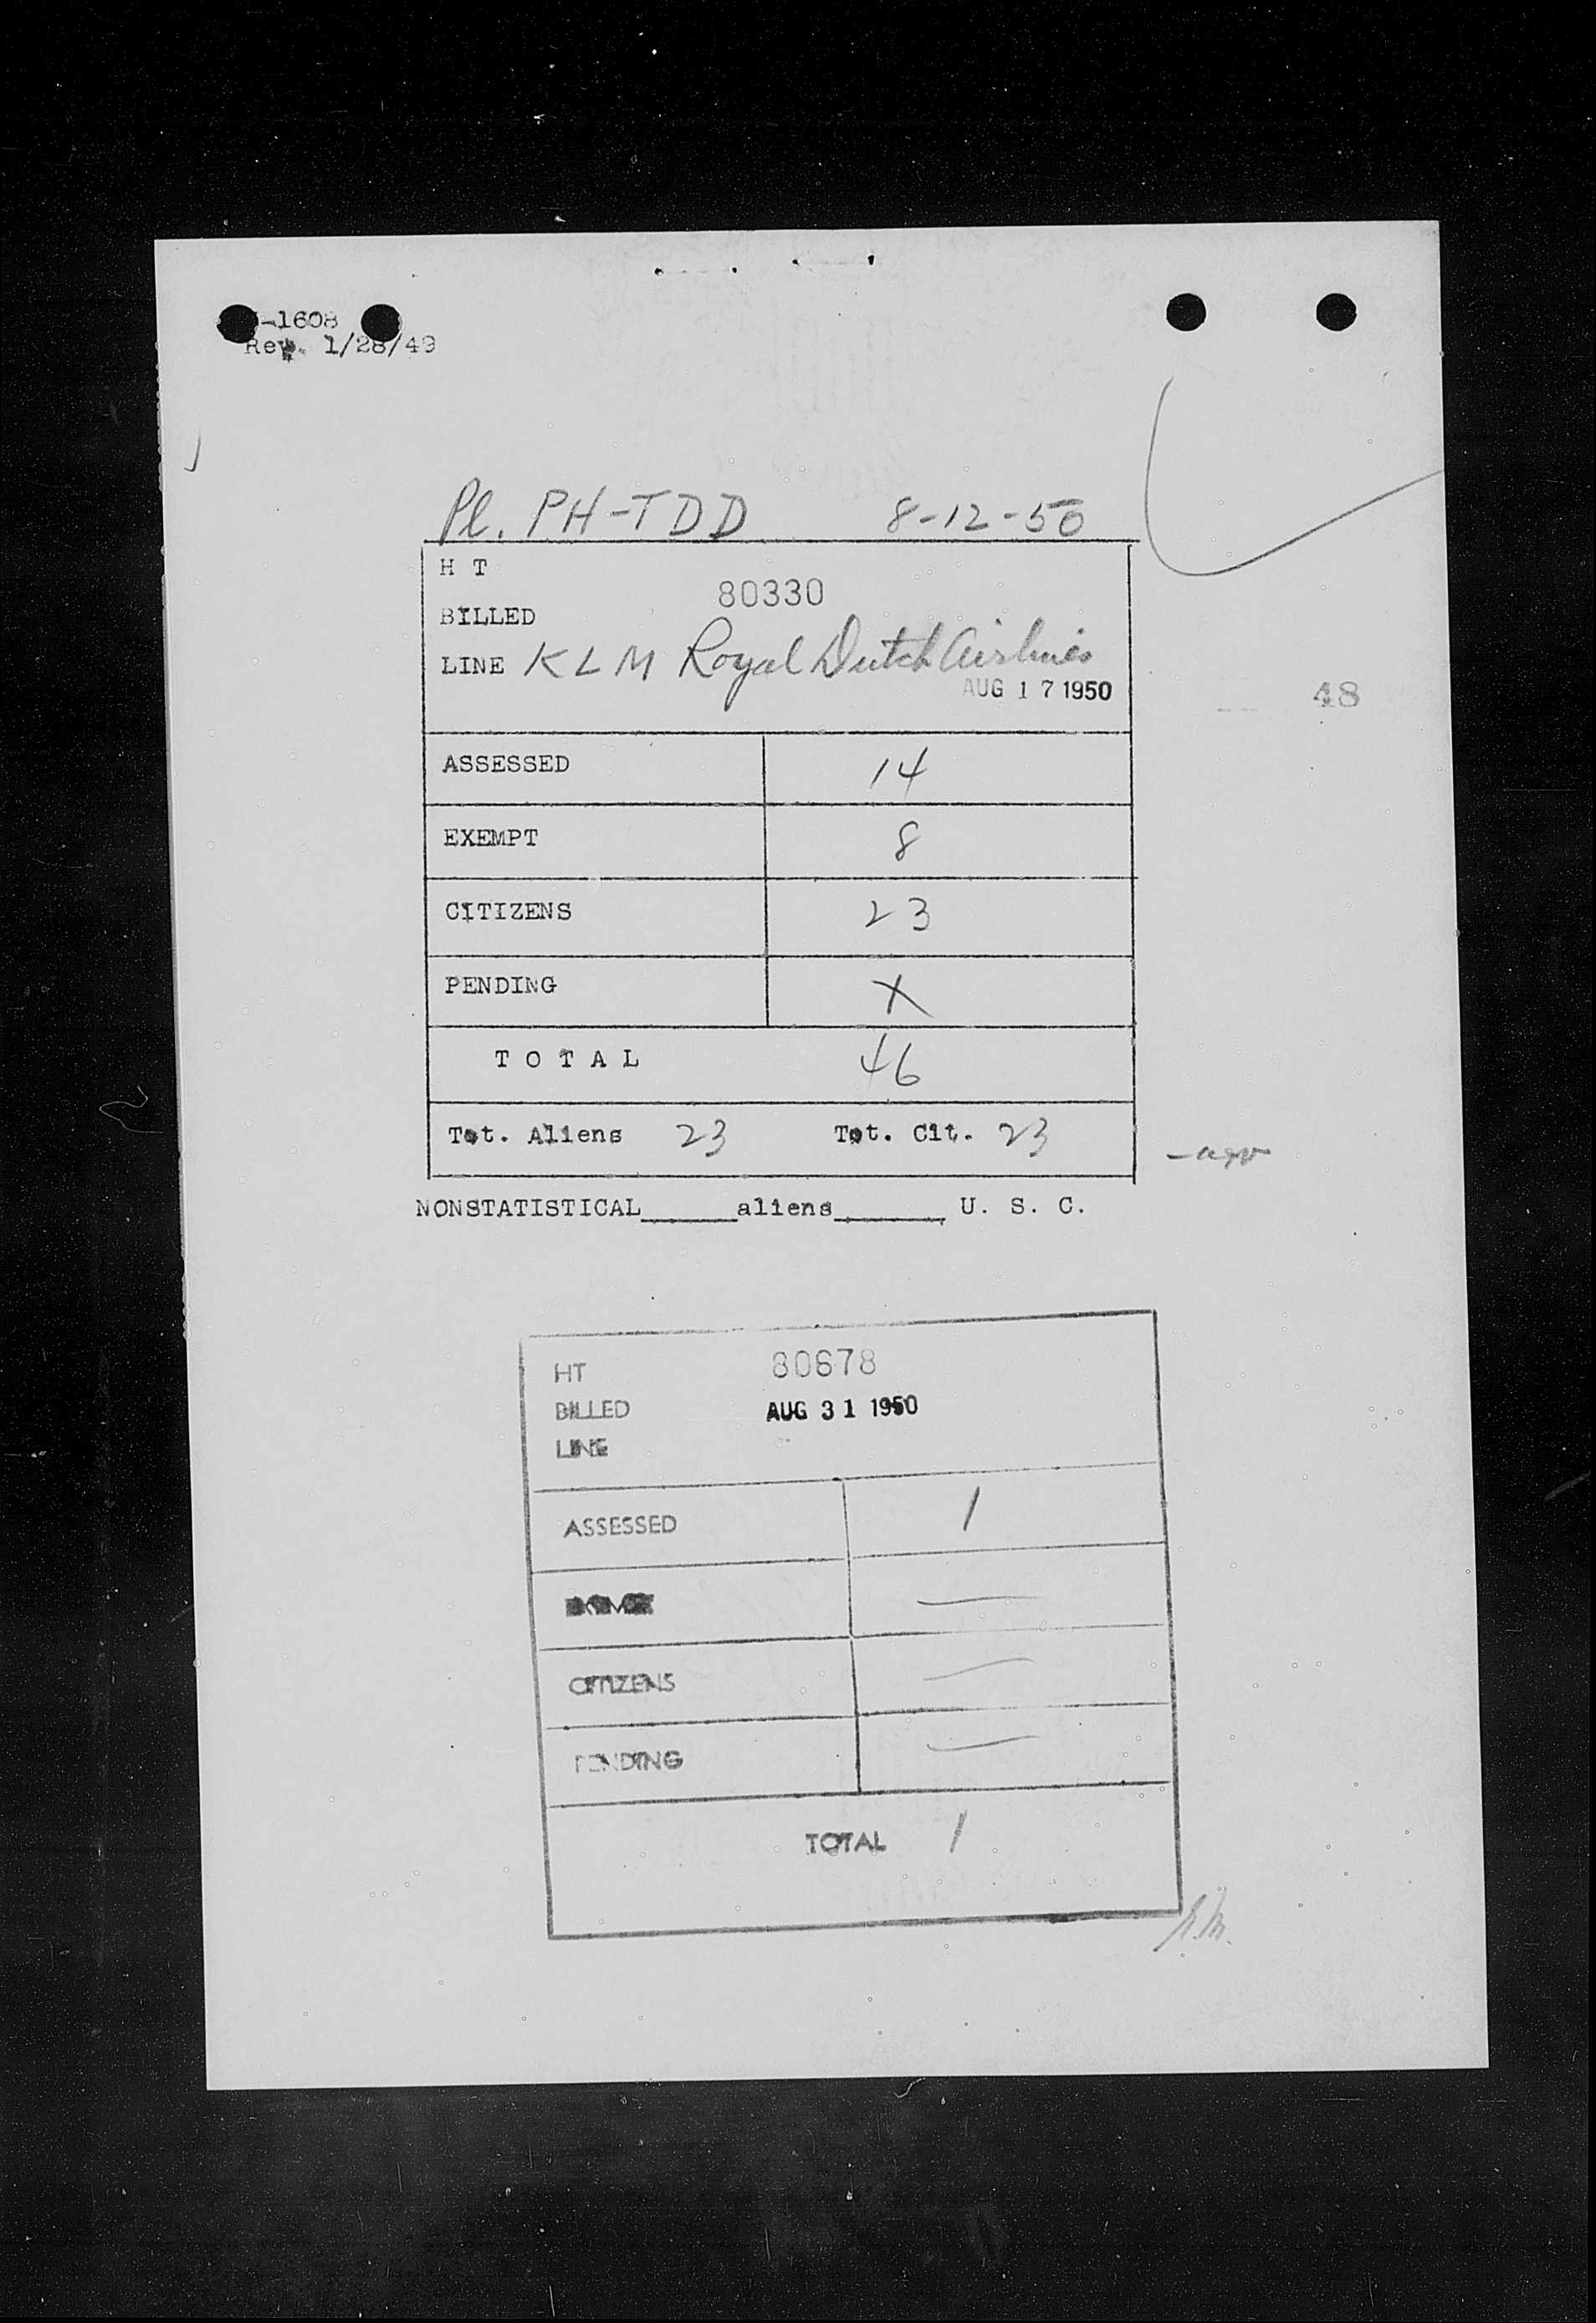 -1608
Rev. 1/28/49
Pl. PH-TDD 8-12-50
H T
80330
BILLED
LINE KLM Royal Dutch Airlines
AUG 17 1950
48
ASSESSED 14
EXEMPT 8
CITIZENS 23
PENDING X
TOTAL 46
Tot. Aliens 23 Tot. Cit. 23
NONSTATISTICAL______aliens_______ U. S. C.
HT 80678
BILLED AUG 31 1950
LINE
ASSESSED 1
CITIZENS —
PENDING —
TOTAL 1